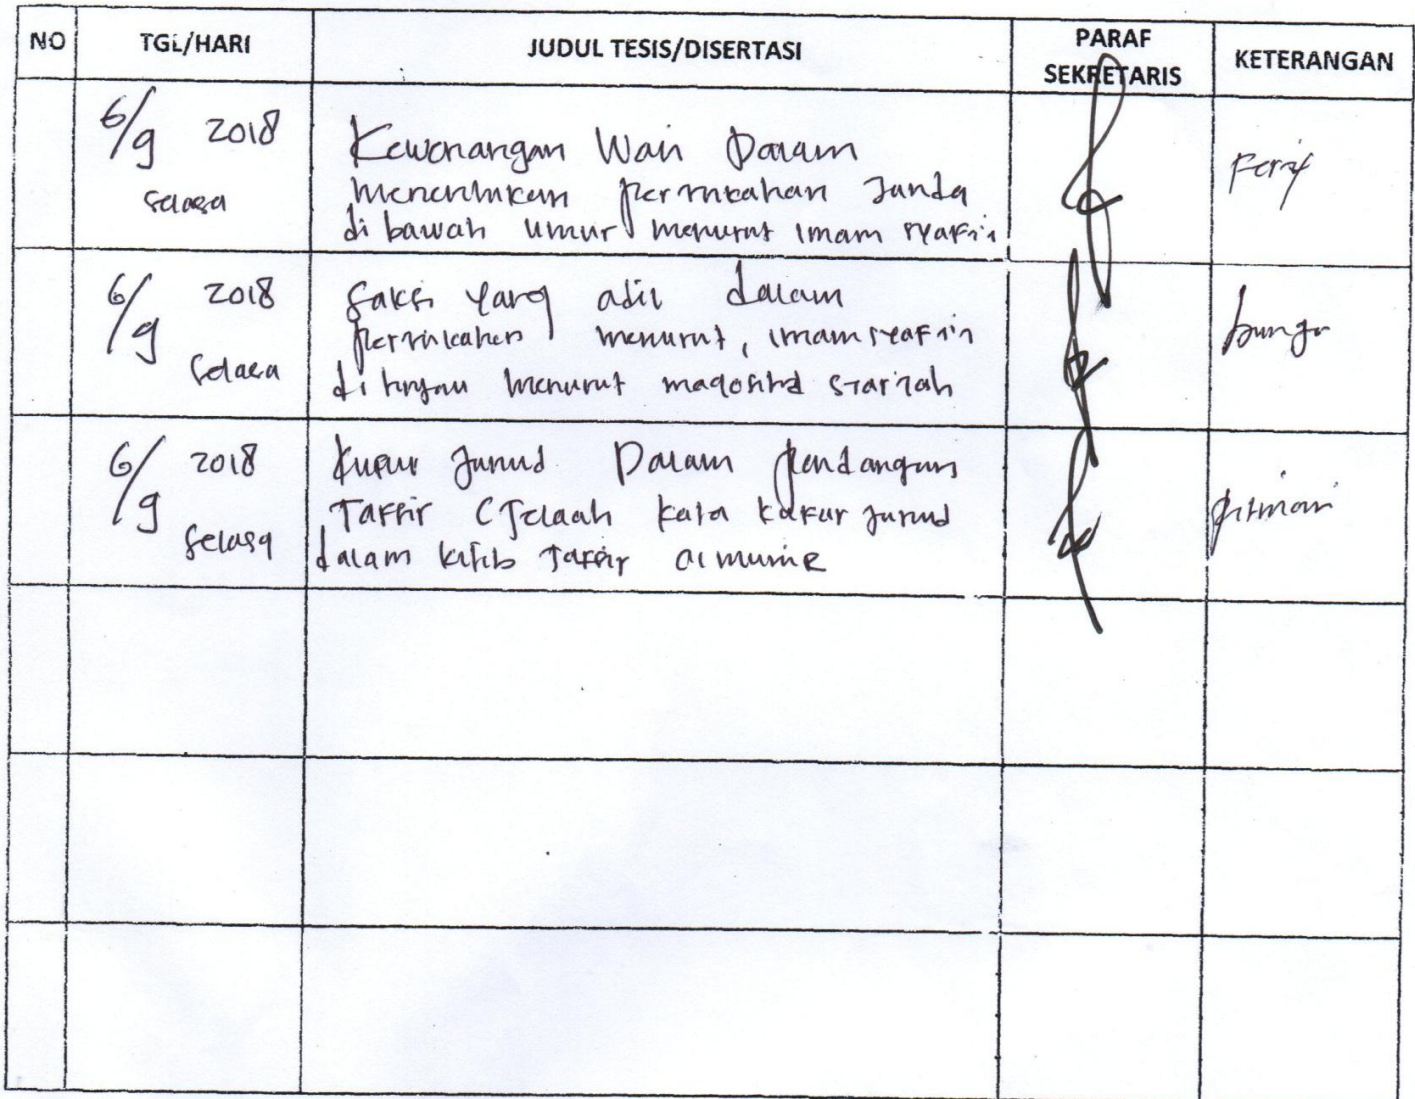 NO TGL/HARI JUDUL TESIS/DISERTASI PARAF SEKRETARIS KETERANGAN
6/9 2018 Selasa
Kewenangan Wali Dalam
menentukan pernikahan Janda
dibawah umur menurut imam syafi'i
6/9 2018 Selasa
Saksi yang adil dalam
pernikahan menurut, imam syafi'i
di tinjau menurut maqoshid syari'ah
bunga
6/9 2018 Selasa
Kufur Juhud Dalam pandangan
Tafsir (Telaah kata kufur juhud
dalam kitib Tafsir al munir